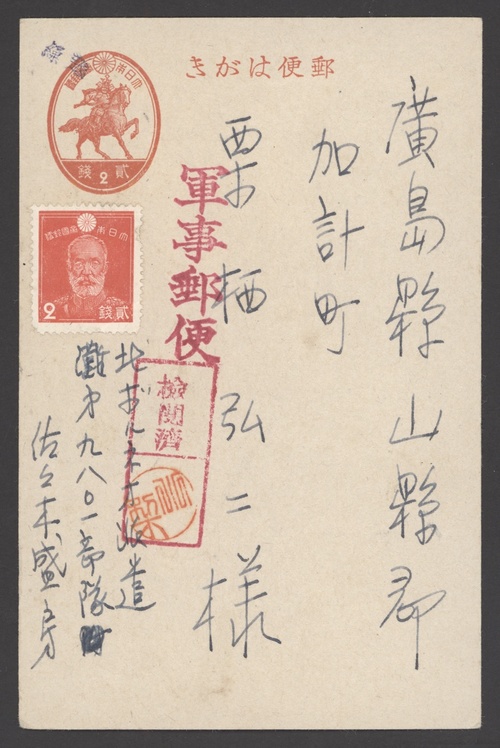 郵便はがき
大日本帝國郵便
2
貳錢
大日本帝國郵便
2
貳錢
廣島縣山縣郡
加計町
栗栖弘二様
軍事郵便
檢閲濟
北ボルネオ派遣
灘才九八〇一部隊
佐々木盛